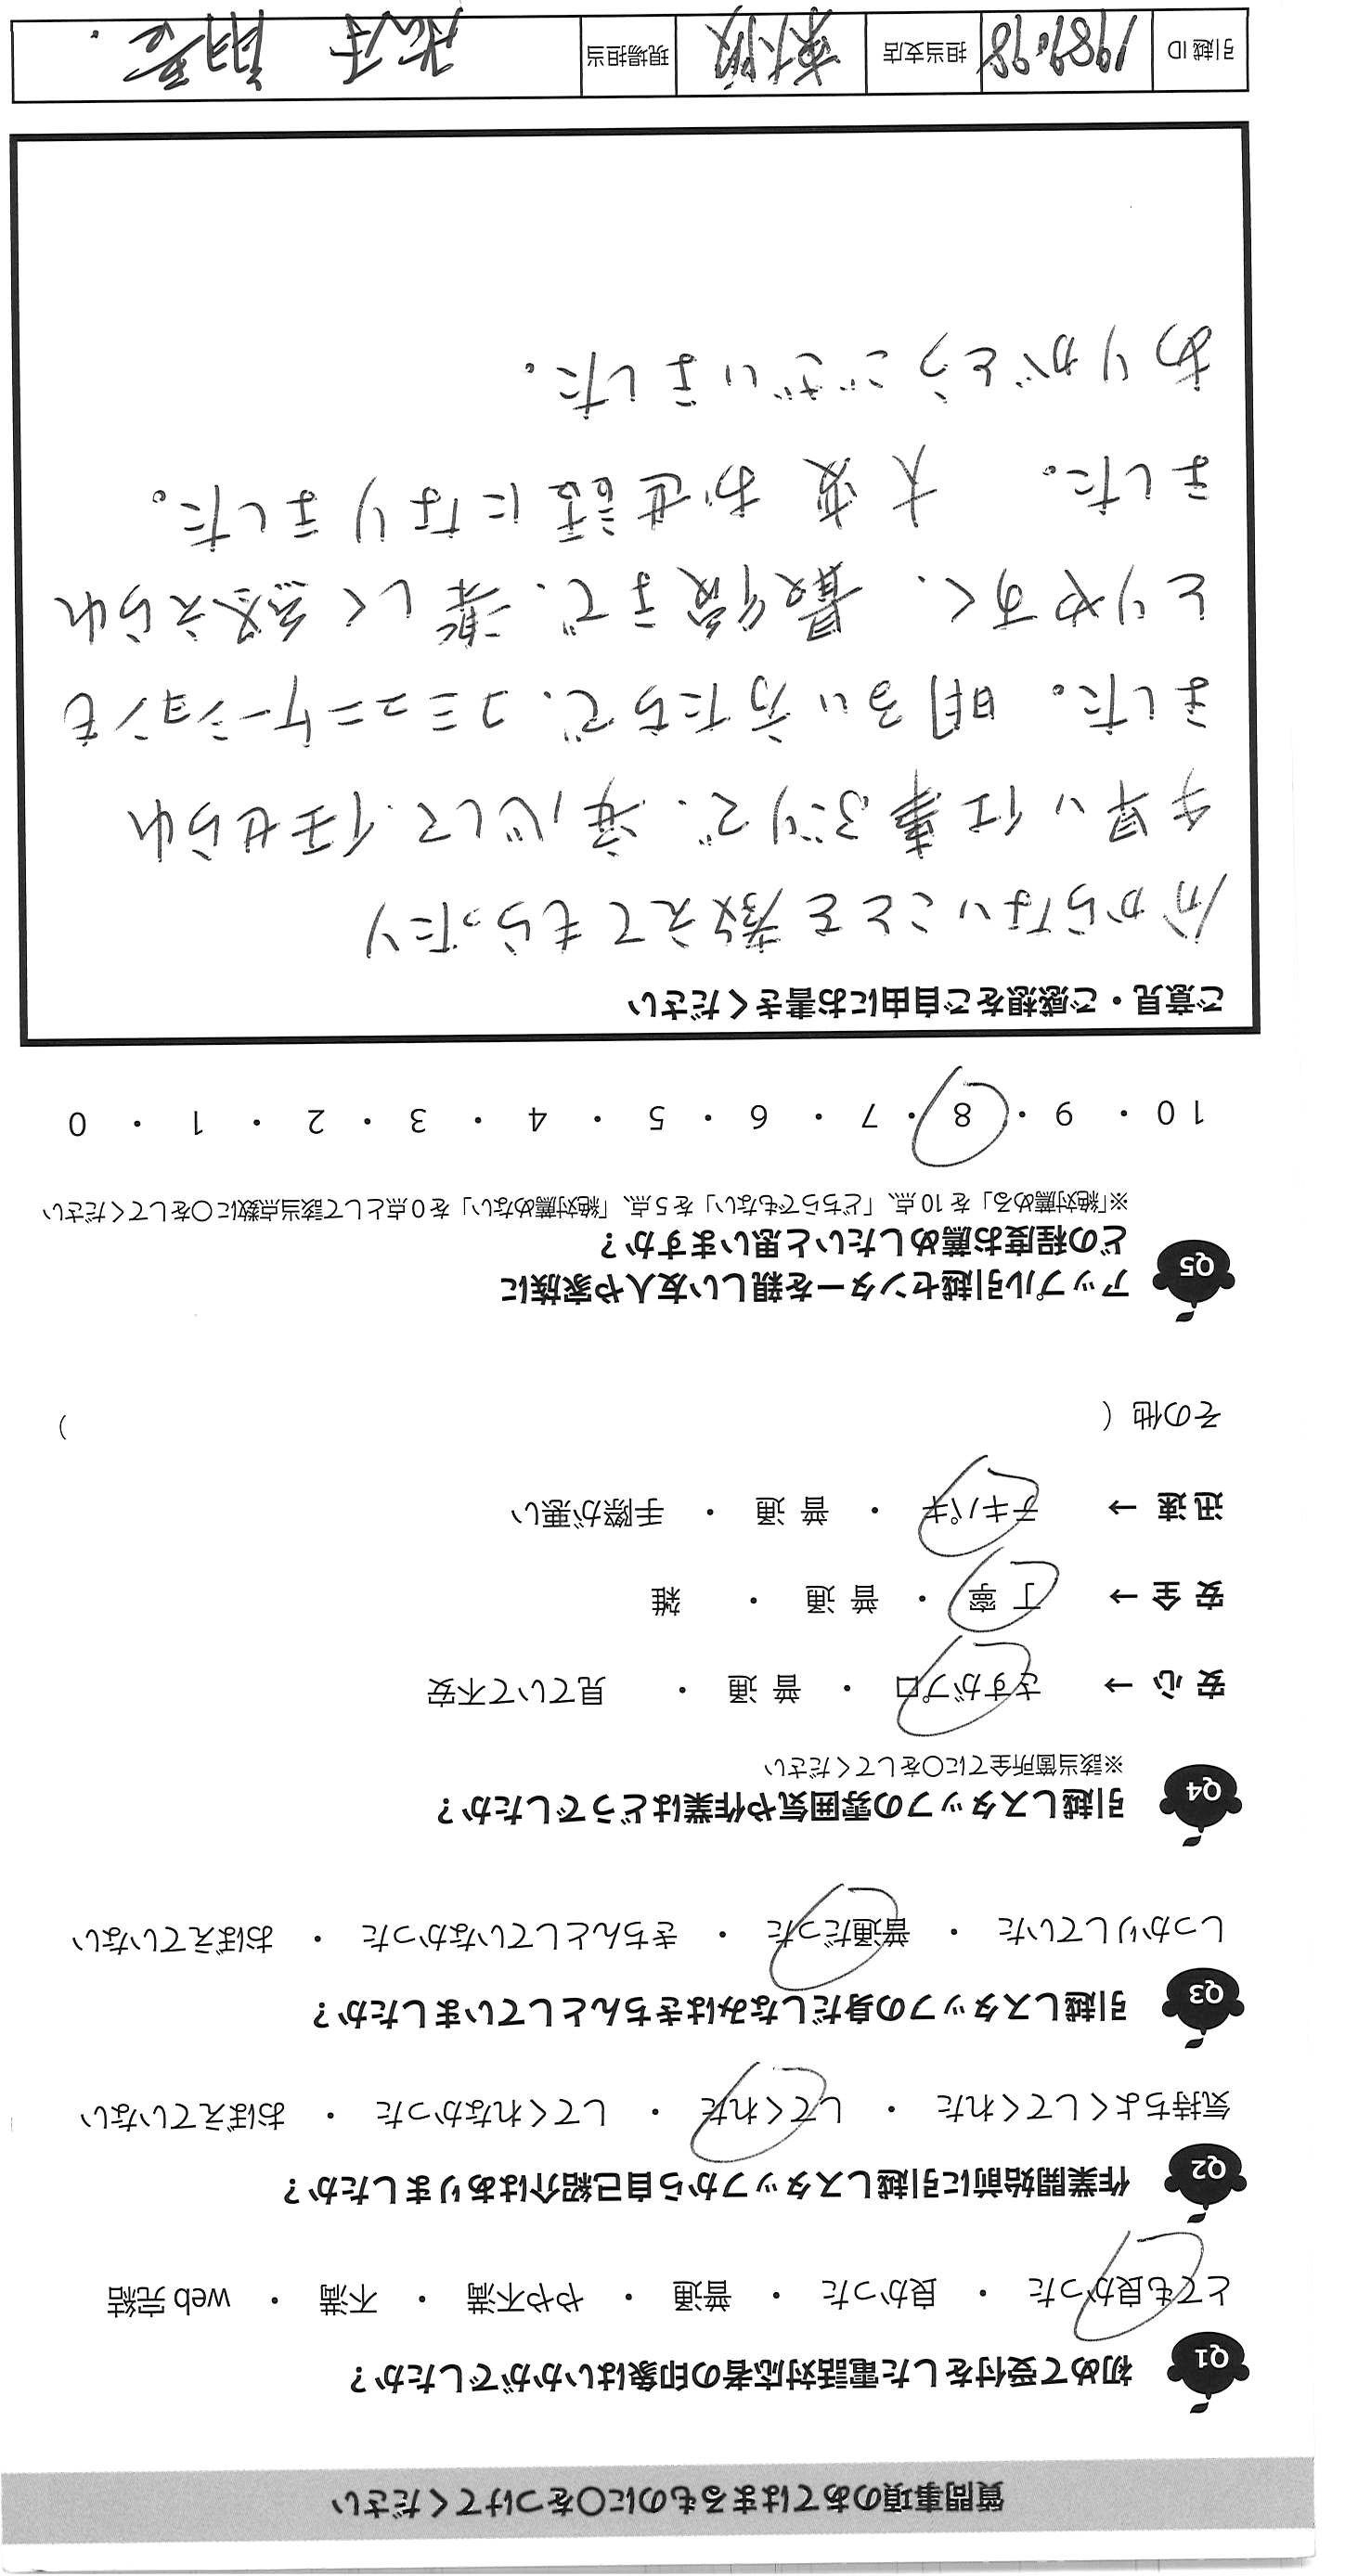 質問事項のあてはまるものに〇をつけてください
Q1 初めて受付をした電話対応者の印象はいかがでしたか？
とても良かった ・ 良かった ・ 普通 ・ やや不満 ・ 不満 ・ web 完結
Q2 作業開始前に引越しスタッフから自己紹介はありましたか？
気持ちよくしてくれた ・ してくれた ・ してくれなかった ・ おぼえていない
Q3 引越しスタッフの身だしなみはきちんとしていましたか？
しっかりしていた ・ 普通だった ・ きちんとしていなかった ・ おぼえていない
Q4 引越しスタッフの雰囲気や作業はどうでしたか？
※該当箇所全てに〇をしてください
安 心 → さすがプロ ・ 普 通 ・ 見ていて不安
安 全 → 丁 寧 ・ 普 通 ・ 雑
迅 速 → テキパキ ・ 普 通 ・ 手際が悪い
その他（ ）
Q5 アップル引越センターを親しい友人や家族に
どの程度お薦めしたいと思いますか？
※「絶対薦める」を 10 点、「どちらでもない」を 5 点、「絶対薦めない」を 0 点として該当点数に〇をしてください
10 ・ 9 ・ 8 ・ 7 ・ 6 ・ 5 ・ 4 ・ 3 ・ 2 ・ 1 ・ 0
ご意見・ご感想をご自由にお書きください
分からないことを教えてもらったり
手早い仕事ぶりで、安心して任せられ
ました。明るい方たちで、コミュニケーションも
とりやすく、最後まで、楽しく終えられ
ました。 大変お世話になりました。
ありがとうございました。
引越 ID 1989098 担当支店 東大阪 現場担当